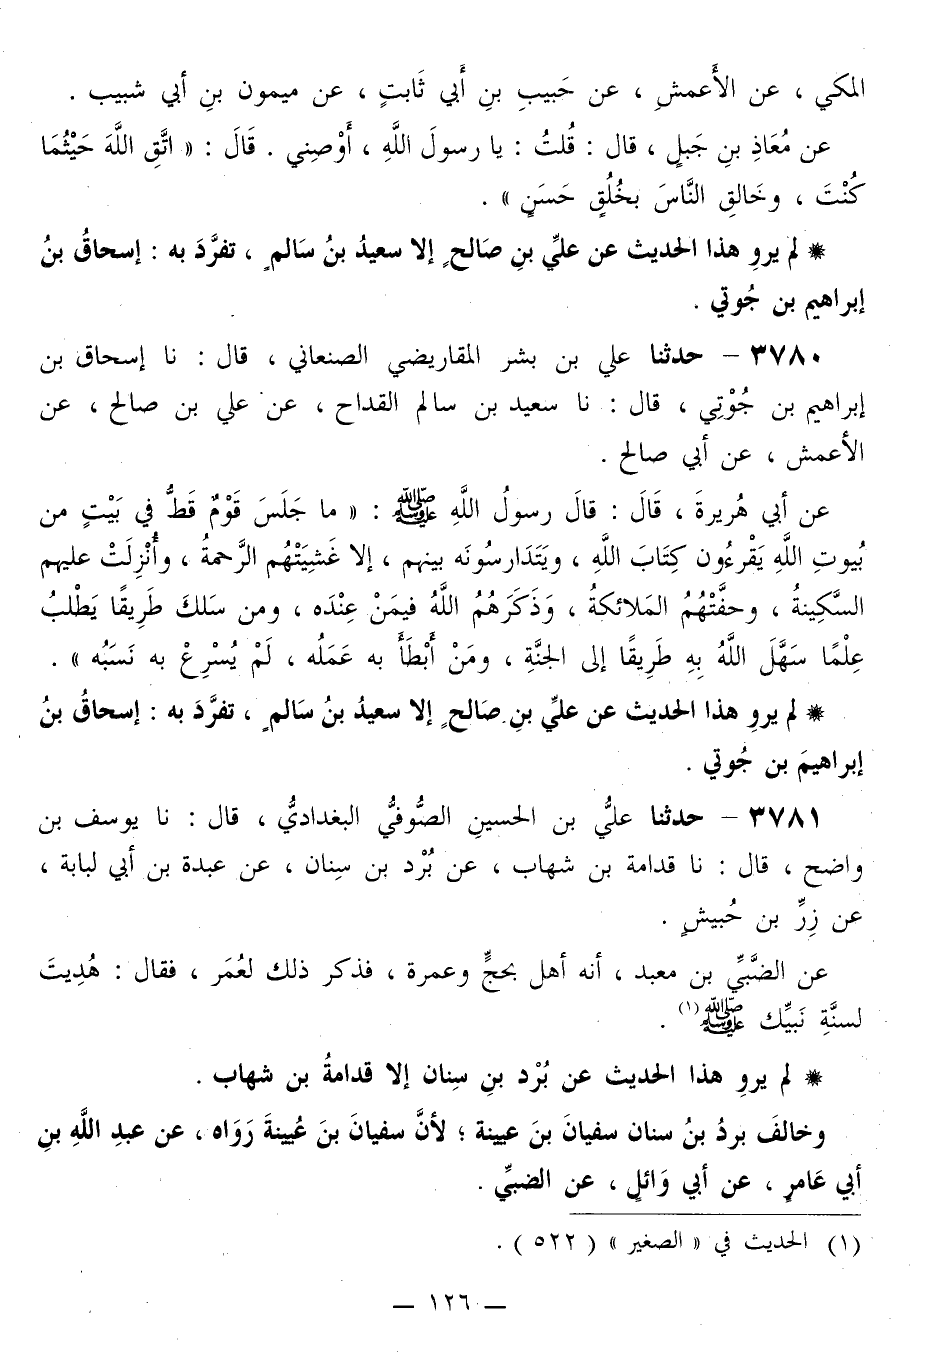 المكي ، عن الأَعمشِ ، عن حَبيبِ بنِ أَبي ثَابتٍ ، عن ميمون بنِ أبي شبيب .
عن مُعَاذِ بنِ جَبلٍ ، قال : قُلتُ : يا رسولَ اللَّهِ ، أَوْصِني . قَالَ : « اتَّقِ اللَّهَ حَيْثُمَا
كُنْتَ ، وخَالقِ النَّاسَ بخُلُقٍ حَسَنٍ » .
* لم يروِ هذا الحديث عن عليِّ بنِ صَالحٍ إلا سعيدُ بنُ سَالمٍ ، تفرَّدَ به : إسحاقُ بنُ
إبراهيم بن جُوتي .
٣٧٨٠ – حدثنا علي بن بشر المقاريضي الصنعاني ، قال : نا إسحاق بن
إبراهيم بن جُوْتِي ، قال : نا سعيد بن سالم القداح ، عن علي بن صالح ، عن
الأعمش ، عن أبي صالح .
عن أبي هُريرةَ ، قَالَ : قالَ رسولُ اللَّهِ ﷺ : « ما جَلَسَ قَوْمٌ قَطُّ في بَيْتٍ من
بُيوتِ اللَّهِ يَقْرءُون كِتَابَ اللَّهِ ، ويَتَدَارسُونَه بينهم ، إلا غَشِيَتْهُم الرَّحمةُ ، وأُنْزِلَتْ عليهم
السَّكِينةُ ، وحفَّتْهُمُ المَلائكةُ ، وَذَكَرَهُمُ اللَّهُ فيمَنْ عِنْدَه ، ومن سَلكَ طَرِيقًا يَطْلبُ
عِلْمًا سَهَّلَ اللَّهُ بِهِ طَرِيقًا إلى الجنَّةِ ، ومَنْ أَبْطَأَ به عَمَلُه ، لَمْ يُسْرِعْ به نَسَبُه » .
* لم يروِ هذا الحديث عن عليِّ بنِ صَالحٍ إلا سعيدُ بنُ سَالمٍ ، تفرَّدَ به : إسحاقُ بنُ
إبراهيمَ بن جُوتي .
٣٧٨١ – حدثنا عليُّ بن الحسينِ الصُّوفيُّ البغداديُّ ، قال : نا يوسف بن
واضح ، قال : نا قدامة بن شهاب ، عن بُرْد بن سِنان ، عن عبدة بن أبي لبابة ،
عن زِرِّ بن حُبيشٍ .
عن الضَّبِّيِّ بن معبد ، أنه أهل بحجٍّ وعمرة ، فذكر ذلك لعُمَر ، فقال : هُدِيتَ
لسنَّةِ نَبيِّك ﷺ(١) .
* لم يروِ هذا الحديث عن بُرْد بنِ سِنان إلا قدامةُ بن شهاب .
وخالفَ بردُ بنُ سنان سفيانَ بنَ عيينة ؛ لأنَّ سفيانَ بنَ عُيينةَ رَوَاه ، عن عبدِ اللَّهِ بنِ
أبي عَامرٍ ، عن أبي وَائلٍ ، عن الضبيِّ .
(١) الحديث في « الصغير » ( ٥٢٢ ) .
— ١٢٦ —